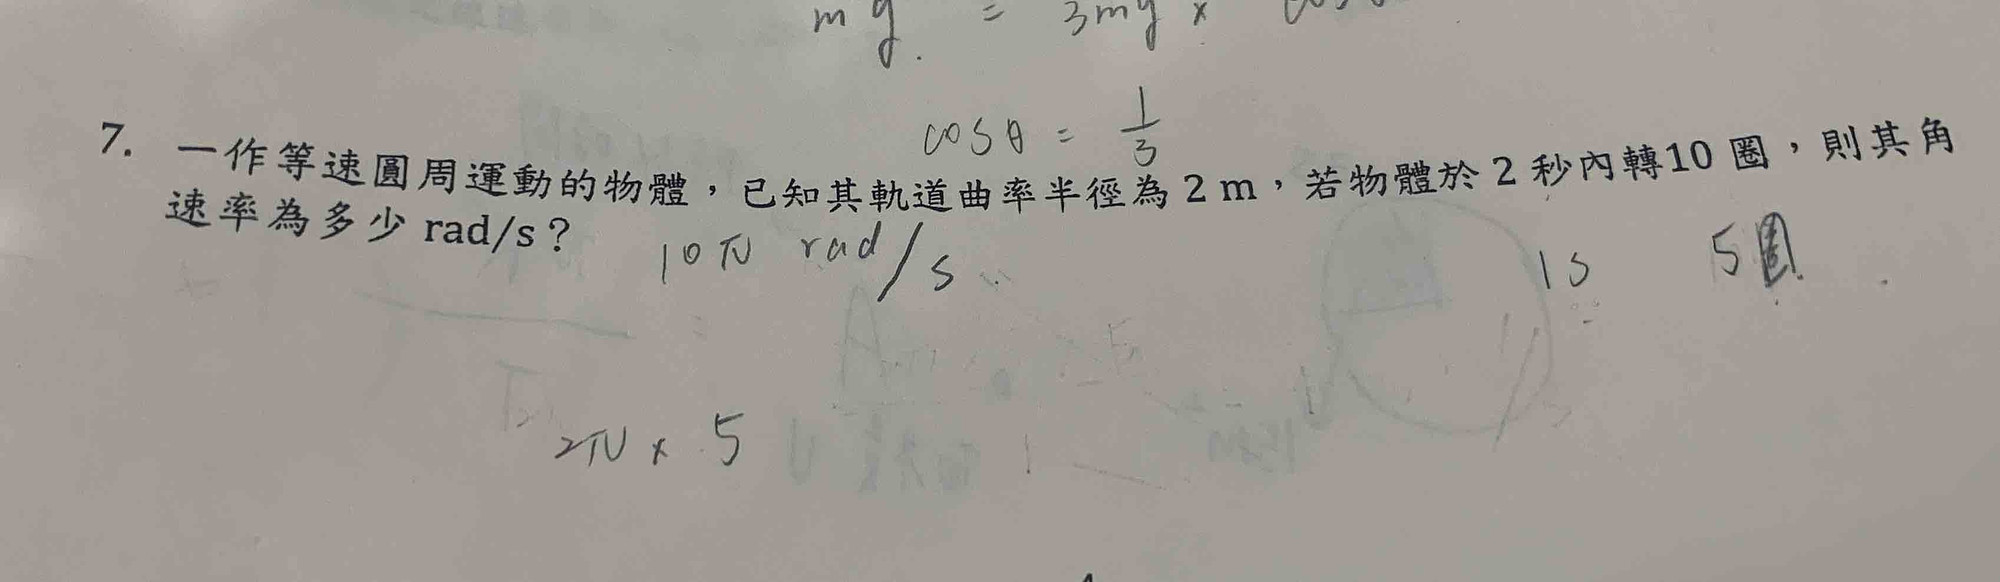 mg = 3mg x cosθ
cosθ = 1/3
7. 一作等速圓周運動的物體，已知其軌道曲率半徑為 2 m，若物體於 2 秒內轉10 圈，則其角
速率為多少 rad/s？
10π rad/s
1s 5圈
2π x 5